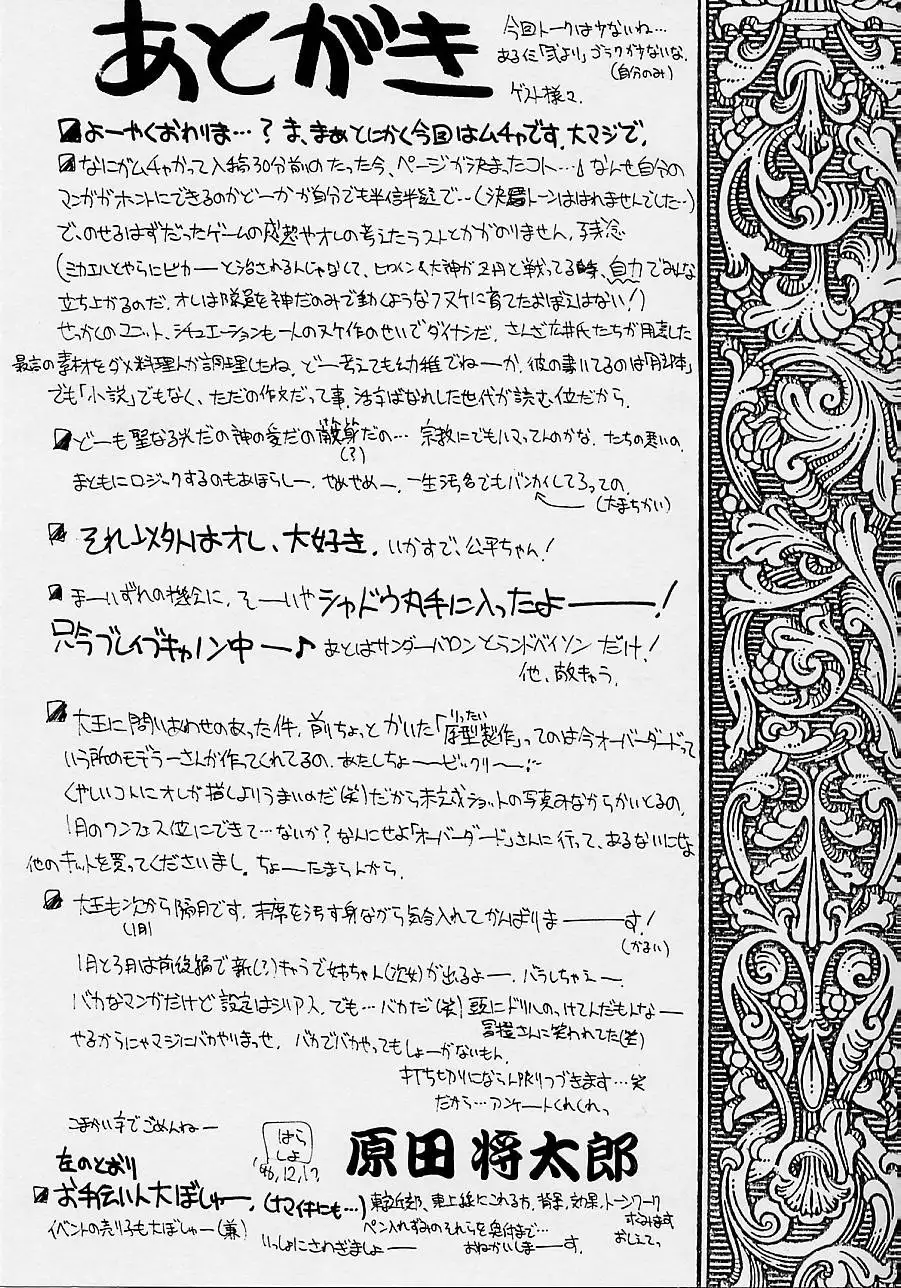 あとがき
今回トークは少ないね…
あるに「弐より」ゴラクが少ないな
(自分のみ)
ゲスト様々
よーやくおわりま…？ま、まぁとにかく今回はムチャです。大マジで。
なにがムチャかって入稿30分前のたった今、ページが決まったコト…♩なんせ自分の
マンガがホントにできるのかどーかが自分でも半信半疑で…(決局トーンははれませんでした…)
で、のせるはずだったゲームの感想やオレの考えたラストとかがのりません。残念
(ミカエルとやらにピカーーと治されるんじゃなくて、ヒロイン&大神が正月と戦ってる時、自力でみんな
立ち上がるのだ。オレは隊員を神だのみで動くようなフヌケに育てたおぼえはない！)
せっかくのユニット、シチュエーションも一人のヌケ作のせいでダイナシだ。さんざ広井氏たちが用意した
最高の素材をダメ料理人が調理したね。どー考えても幼稚でねーか。彼の書いてるのは「脚本」
でも「小説」でもなく、ただの作文だって事。活字ばなれした世代が読む位だから。
どーも聖なる光だの神の愛だの
(?)
だの…宗教にでもハマってんのかな。たちの悪いの
まともにロジックするのもあほらしー。やめやめー。一生汚名でもバンカイしてろっての。
(大まちがい)
それ以外はオレ、大好き。いかすで、公平ちゃん！
まーいずれの機会に、そーいやシャドウ丸手に入ったよーーー！
只今ブレイブキャノン中ー♪あとはサンダーバロンとランドバイソンだけ！
他、敵きゃら。
大王に問いあわせのあった件。前ちょっとかいた「原型製作」ってのは今オーバーダードって
りったい
いう所のモデラーさんが作ってくれてるの。あたしちょーービックリー…
くやしいコトにオレが描くよりうまいのだ(笑)だから未完成ショットの写真みながらかいとるの。
1月のワンフェス位にできて…ないか？なんにせよ「オーバーダード」さんに行って、あるないにせよ
他のキットを買ってくださいまし。ちょーたまらんから。
大王も次から隔月です。末席を汚す身ながら気合入れてがんばりまーーーす！
(1月)
(かるい)
1月と3月は前後編で新(?)キャラで姉ちゃん(次女)が出るよー。バラしちゃえー
バカなマンガだけど設定はシリアス。でも…バカだ(笑)頭にドリルのっけてんだもんなー
冨樫さんに笑われてた(笑)
やるからにゃマジにバカやりまっせ。バカでバカやってもしょーがないもん。
打ち切りにならん限りつづきます…笑
だから…アンケートくれくれっ
こまかい字でごめんねー
はら
しょ
'96.12.17
原田将太郎
左のとおり
お手伝い人大ぼしゅー。(ナマイキにも…)東京近郊、東上線にこれる方。背景、効果、トーンワーク
ペン入れずみのそれらを受付まで…
するみます
おしえてっ
イベントの売り子も大ぼしゅー(兼)
いっしょにさわぎましょーー
おねがいしまーす。